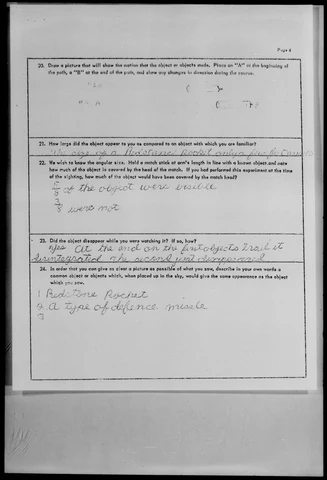 Page 4
20. Draw a picture that will show the motion that the object or objects made. Place an "A" at the beginning of
the path, a "B" at the end of the path, and show any changes in direction during the course.
A
21. How large did the object appear to you as compared to an object with which you are familiar?
The size of a Redstone Rocket only a
22. We wish to know the angular size. Hold a match stick at arm's length in line with a known object and note
how much of the object is covered by the head of the match. If you had performed this experiment at the time
of the sighting, how much of the object would have been covered by the match head?
of the object were visible
were not
23. Did the object disappear while you were watching it? If so, how?
Yes At the end on the first objects trail it
disintegrated the second just disappeared
24. In order that you can give as clear a picture as possible of what you saw, describe in your own words a
common object or objects which, when placed up in the sky, would give the same appearance as the object
which you saw.
1 Redstone Rocket
2. A type of defence missle
3